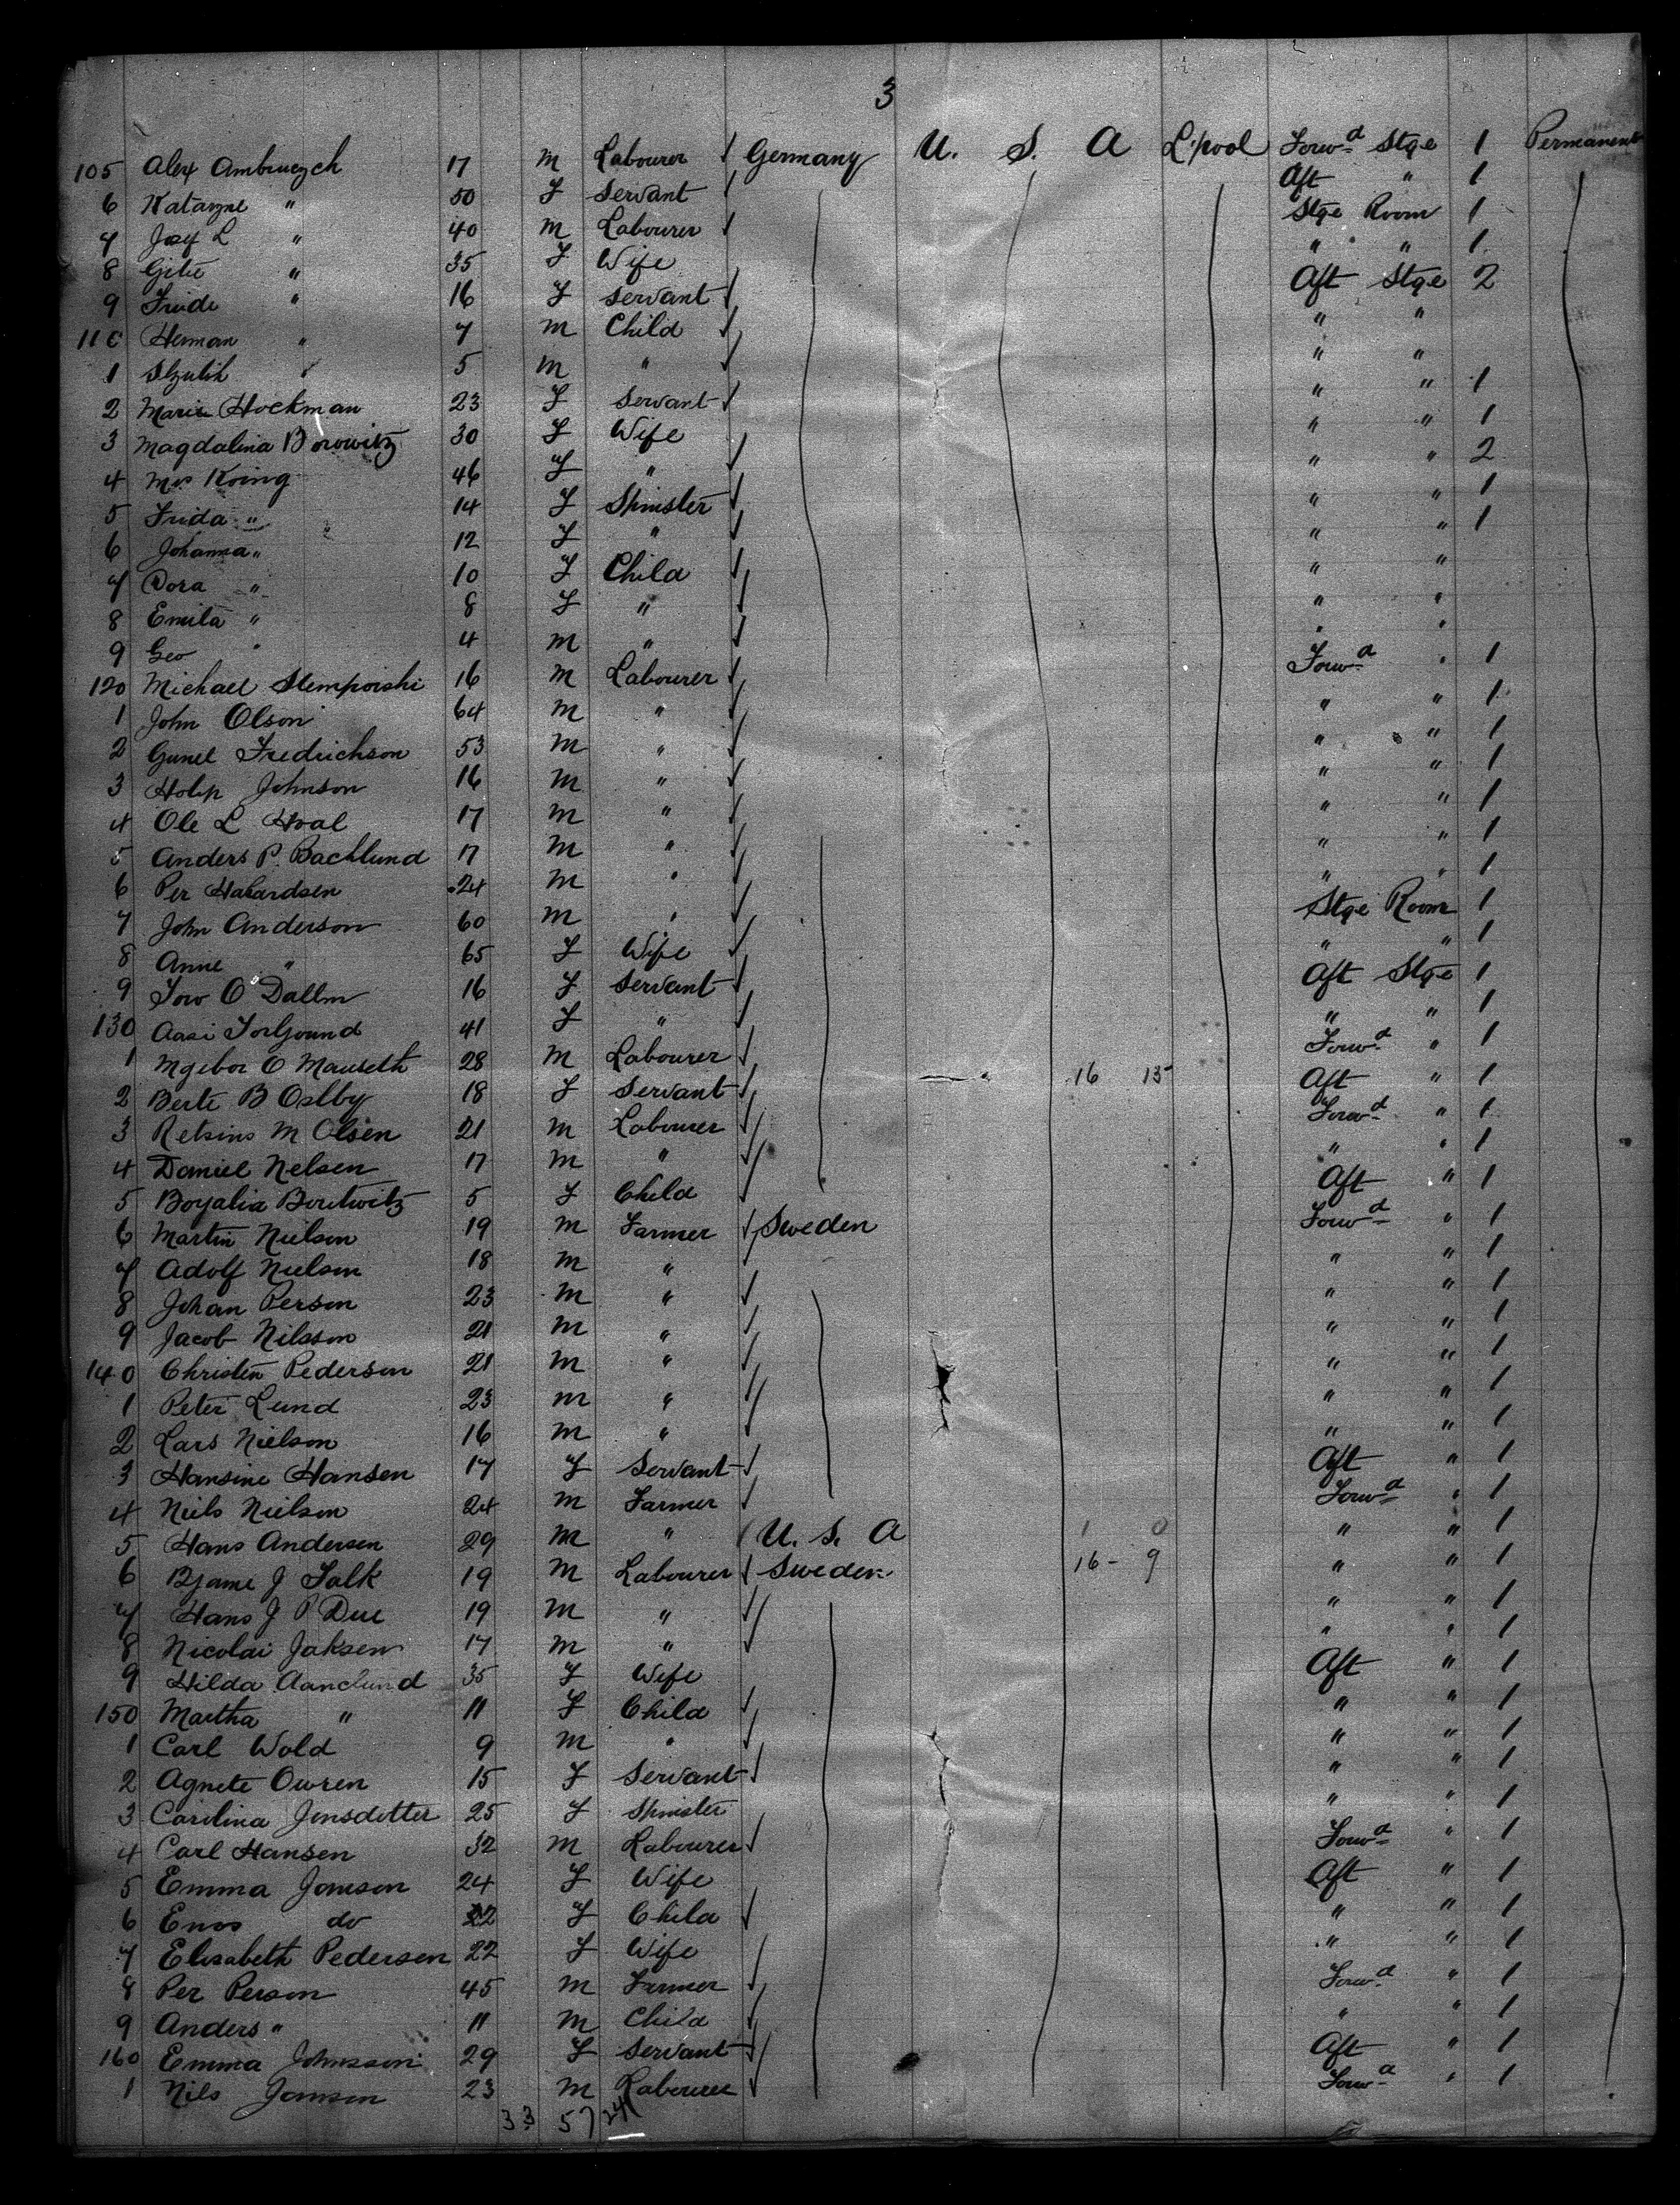 3
105 Alex Ambruczch 17 m Labourer ✓ Germany U. S. A L'pool Forwd Stge 1 Permanent
6 Katarzne " 50 F Servant ✓ Aft " 1
7 Josef L " 40 m Labourer ✓ Stge Room 1
8 Gitte " 35 F Wife " " 1
9 Friede " 16 F Servant ✓ Aft Stge 2
110 Herman " 7 m Child ✓ " "
1 " 5 m " ✓ " "
2 Marie Hockman 23 F Servant ✓ " " 1
3 Magdalina Borowitz 30 F Wife " " 1
4 Mrs Koing 46 F " ✓ " " 2
5 Frida " 14 F Spinster ✓ " " 1
6 Johanna " 12 F " ✓ " " 1
7 Dora " 10 F Child ✓ " "
8 Emila " 8 F " ✓ " "
9 Geo " 4 m " ✓ " "
120 Michael Stempoishi 16 m Labourer ✓ Forwd " 1
1 John Olson 64 m " ✓ " " 1
2 Gunel Fredrichson 53 m " ✓ " " 1
3 Johnson 16 m " ✓ " " 1
4 Ole L Hval 17 m " ✓ " " 1
5 Anders P. Bachlund 17 m " ✓ " " 1
6 Per Halvardsen 24 m " ✓ " " 1
7 John Anderson 60 m " ✓ Stge Room 1
8 Anne " 65 F Wife ✓ " " 1
9 O Dallm 16 F Servant ✓ Aft Stge 1
130 Aasi 41 F " ✓ " " 1
1 O Mauseth 28 m Labourer ✓ Forwd " 1
2 Berte B Oslby 18 F Servant ✓ 16 15 Aft " 1
3 M Olsen 21 m Labourer ✓ Forwd " 1
4 Daniel Nelsen 17 m " ✓ " " 1
5 5 F Child ✓ Aft " 1
6 Martin Nielson 19 m Farmer ✓ Sweden Forwd " 1
7 Adolf Nielson 18 m " ✓ " " 1
8 Johan Person 23 m " ✓ " " 1
9 Jacob Nilsson 21 m " ✓ " " 1
140 Christen Pederson 21 m " ✓ " " 1
1 Peter Lund 23 m " ✓ " " 1
2 Lars Nielson 16 m " ✓ " " 1
3 Hansine Hansen 17 F Servant ✓ Aft " 1
4 Niels Nielson 24 m Farmer ✓ Forwd " 1
5 Hans Andersen 29 m " U. S. A 1 0 " " 1
6 Bjarne J Falk 19 m Labourer ✓ Sweden 16 - 9 " " 1
7 Hans J P Due 19 m " ✓ " " 1
8 Nicolai Jaksen 17 m " ✓ " " 1
9 Hilda Aanelund 35 F Wife Aft " 1
150 Martha " 11 F Child ✓ " " 1
1 Carl Wold 9 m " ✓ " " 1
2 Agnete Owren 15 F Servant ✓ " " 1
3 Carilina Jonsdotter 25 F Spinster " " 1
4 Carl Hansen 32 m Labourer ✓ Forwd " 1
5 Emma Jonison 24 F Wife Aft " 1
6 Enos do 22 F Child ✓ " " 1
7 Elisabeth Pedersen 22 F Wife " " 1
8 Per Person 45 m Farmer ✓ Forwd " 1
9 Anders " 11 m Child ✓ " " 1
160 Emma Johnsson 29 F Servant ✓ Aft " 1
1 Nils Jonison 23 m Labourer ✓ Forwd " 1
33 57 24